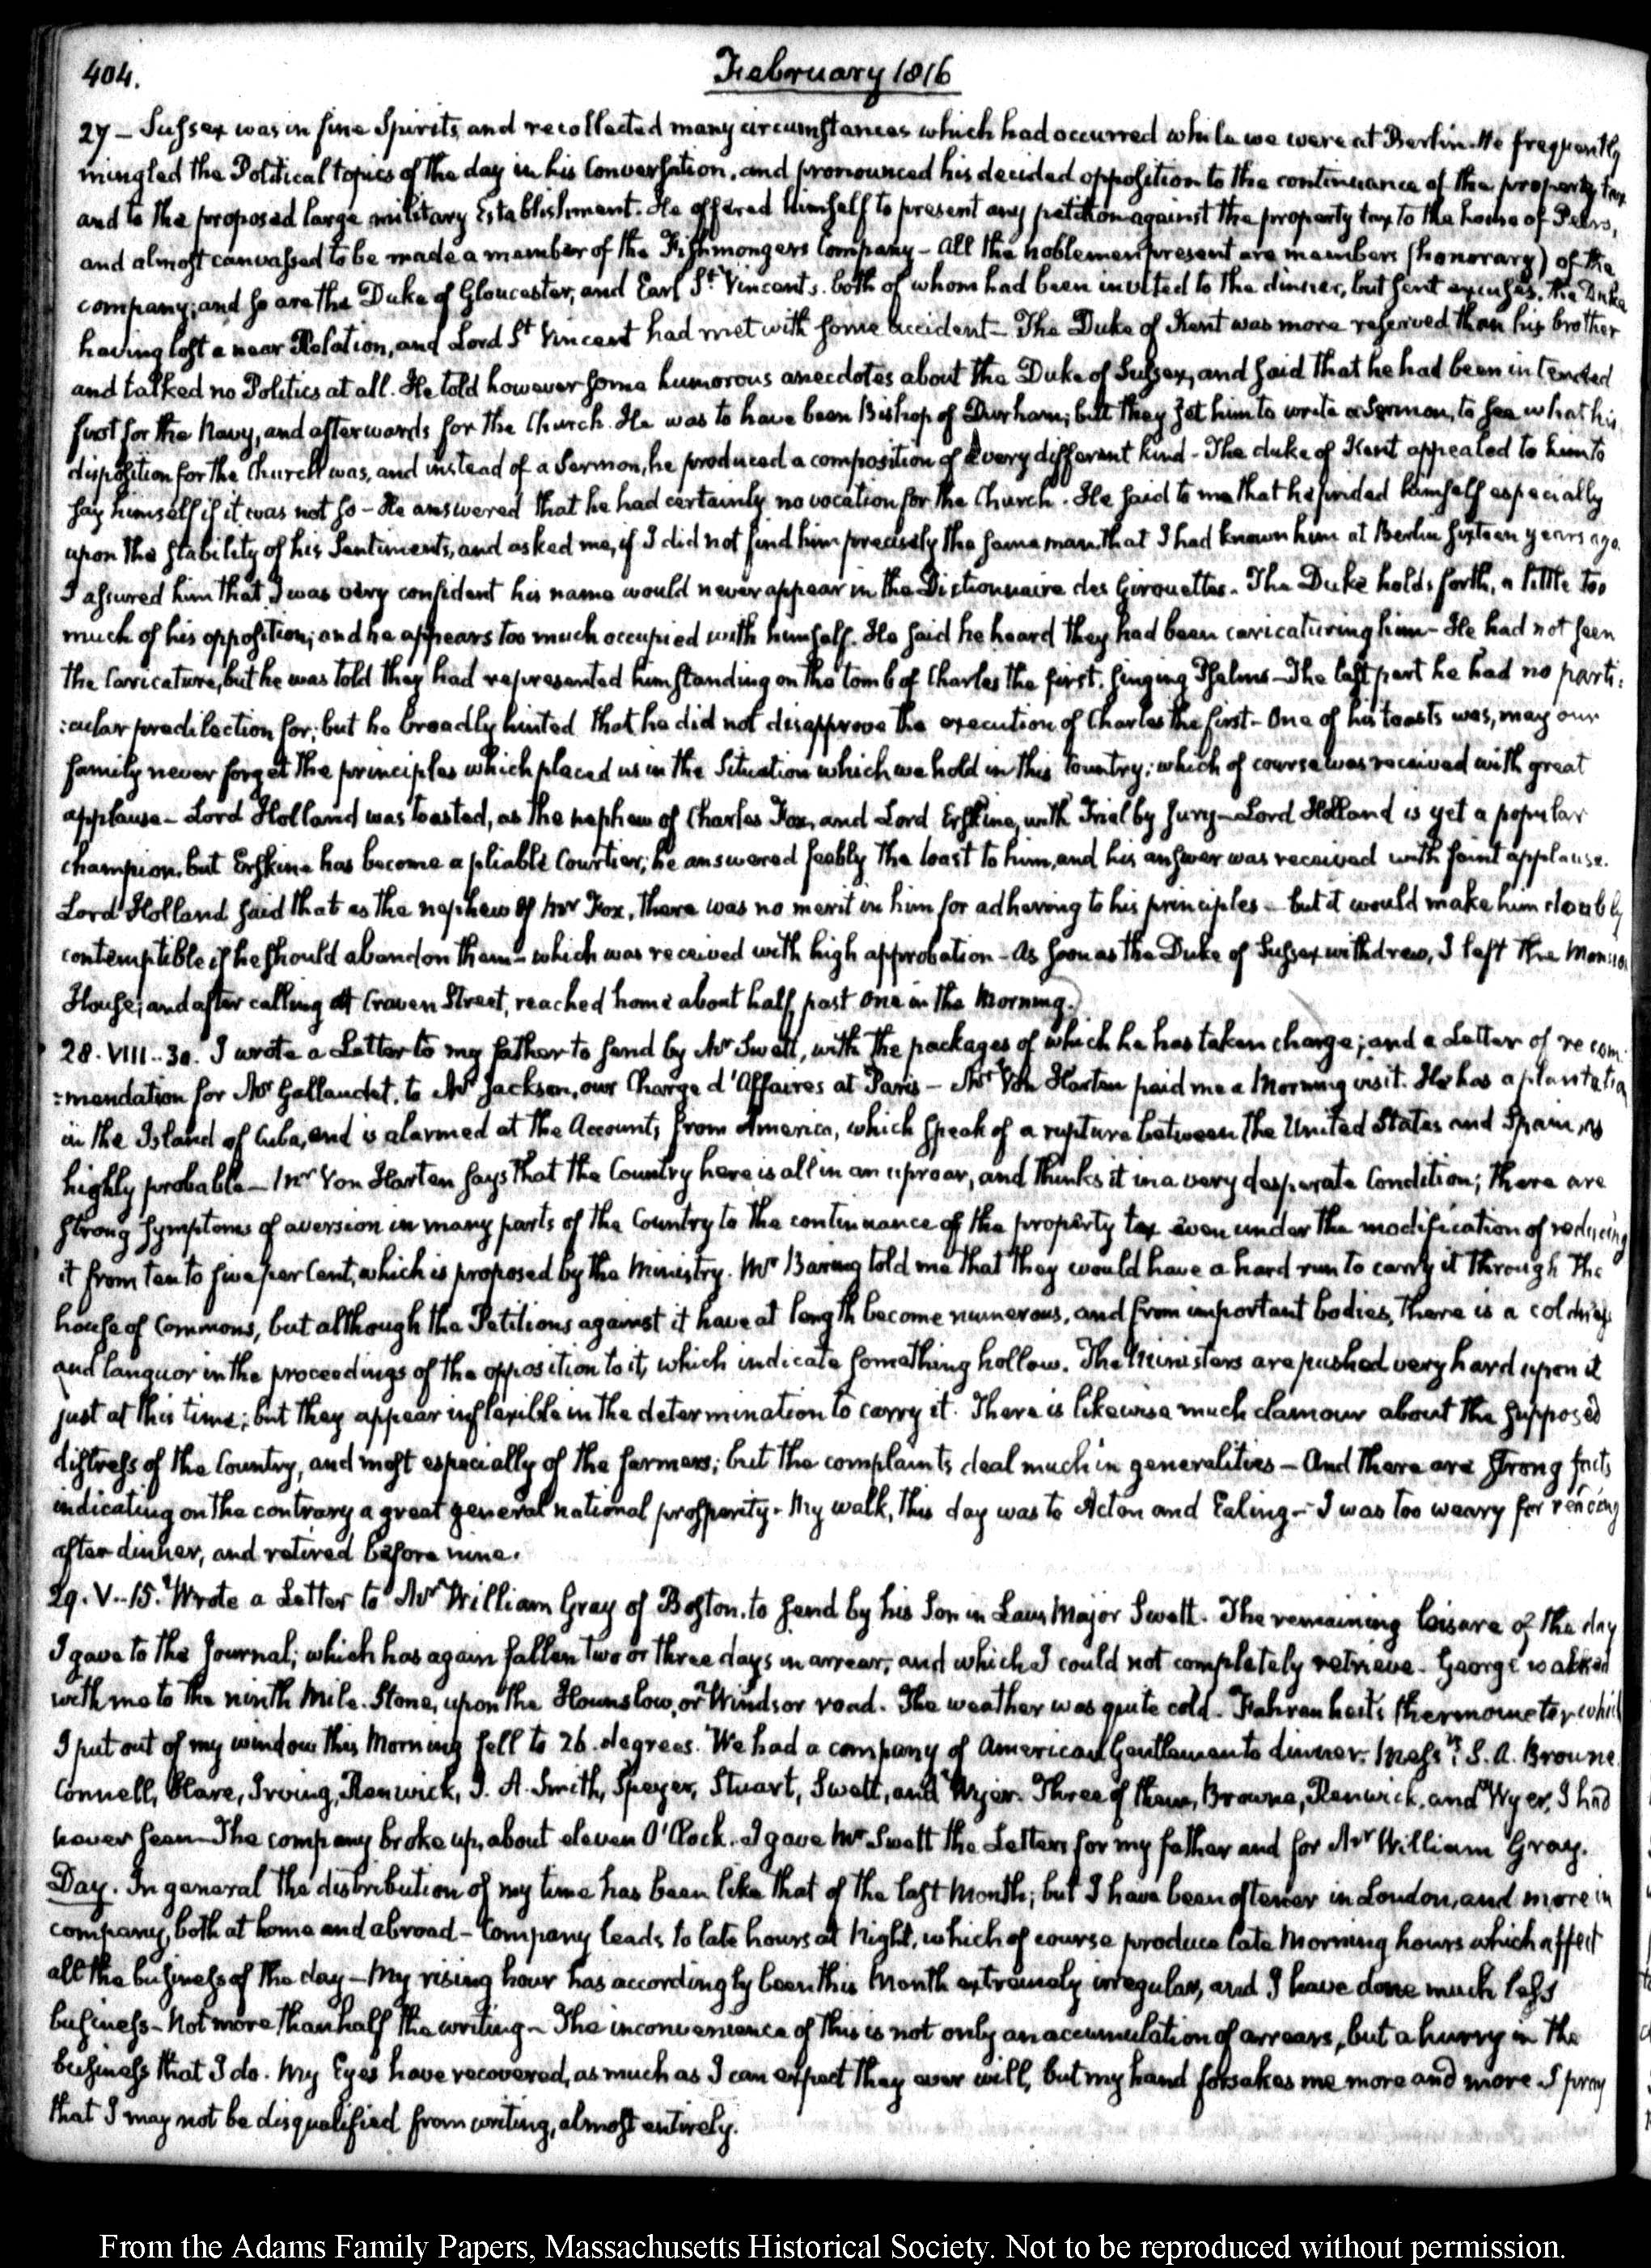 404.
February 1816
27 — Sussex was in fine Spirits, and recollected many circumstances which had occurred while we were at Berlin. He frequently
mingled the Political topics of the day in his Conversation, and pronounced his decided opposition to the continuance of the property tax
and to the proposed large military Establishment. He offered himself to present any petition against the property tax to the house of Peers,
and almost canvassed to be made a member of the Fishmongers Company — All the noblemen present are members (honorary) of the
company; and so are the Duke of Gloucester, and Earl St. Vincents. both of whom had been invited to the dinner, but sent excuses. The Duke
having lost a near Relation, and Lord St Vincent had met with some accident — The Duke of Kent was more reserved than his brother
and talked no Politics at all. He told however some humorous anecdotes about the Duke of Sussex, and said that he had been intended
first for the Navy, and afterwards for the Church. He was to have been Bishop of Durham; but they set him to write a Sermon, to see what his
disposition for the Church was, and instead of a Sermon, he produced a composition of a very different kind — The duke of Kent appealed to him to
say himself if it was not so — He answered that he had certainly no vocation for the Church. He said to me that he prided himself especially
upon the stability of his Sentiments, and asked me, if I did not find him precisely the same man that I had known him at Berlin sixteen years ago.
I assured him that I was very confident his name would never appear in the Dictionnaire des Girouettes. The Duke holds forth, a little too
much of his opposition; and he appears too much occupied with himself. He said he heard they had been caricaturing him — He had not seen
the Carricature, but he was told they had represented him standing on the tomb of Charles the first. singing Psalms — The last part he had no parti:
:cular predilection for; but he broadly hinted that he did not disapprove the execution of Charles the first — One of his toasts was, may our
family never forget the principles which placed us in the Situation which we hold in this Country; which of course was received with great
applause — Lord Holland was toasted, as the nephew of Charles Fox, and Lord Erskine, with Trial by Jury — Lord Holland is yet a popular
champion, but Erskine has become a pliable Courtier; he answered feebly the toast to him, and his answer was received with faint applause.
Lord Holland said that as the nephew of Mr Fox, there was no merit in him for adhering to his principles — but it would make him doubly
contemptible if he should abandon them — which was received with high approbation — As soon as the Duke of Sussex withdrew, I left the Mansion
House; and after calling at Craven Street, reached home about half past one in the Morning.
28. VIII..30. I wrote a Letter to my father to send by Mr Swett, with the packages of which he has taken charge; and a Letter of recom:
:mendation for Mr Gallaudet, to Mr Jackson, our Charge d'Affaires at Paris — Mr Von Harten paid me a Morning visit. He has a plantation
in the Island of Cuba, and is alarmed at the Accounts from America, which speak of a rupture between the United States and Spain, as
highly probable — Mr Von Harten says that the Country here is all in an uproar, and thinks it in a very desperate Condition; there are
strong symptoms of aversion in many parts of the Country to the continuance of the property tax even under the modification of reducing
it from ten to five per Cent, which is proposed by the Ministry. Mr Baring told me that they would have a hard run to carry it through the
house of Commons, but although the Petitions against it have at length become numerous, and from important bodies, there is a coldness
and languor in the proceedings of the opposition to it, which indicate something hollow. The Ministers are pushed very hard upon it
just at this time; but they appear inflexible in the determination to carry it. There is likewise much clamour about the supposed
distress of the Country, and most especially of the farmers; but the complaints deal much in generalities — And there are strong facts
indicating on the contrary a great general national prosperity — My walk, this day was to Acton and Ealing — I was too weary for
after dinner, and retired before nine.
29. V..15. Wrote a Letter to Mr William Gray of Boston, to send by his Son in Law Major Swett. The remaining leisure of the day
I gave to the Journal; which has again fallen two or three days in arrear, and which I could not completely retrieve. George walked
with me to the ninth Mile-Stone, upon the Hounslow, or Windsor road. The weather was quite cold — Fahrenheit's thermometer which
I put out of my window this Morning fell to 26 degrees. We had a company of American Gentlemen to dinner. Messrs S. A. Browne
Connell, Hare, Irving, Renwick, J. A. Smith, Speyer, Stuart, Swett, and Wyer. Three of them, Browne, Renwick, and Wyer, I had
never seen — The company broke up, about eleven O'Clock. I gave Mr Swett the Letters for my father and for Mr William Gray.
Day. In general the distribution of my time has been like that of the last Month; but I have been oftener in London, and more in
company, both at home and abroad — Company leads to late hours at Night, which of course produce late Morning hours which affect
all the business of the day — My rising hour has accordingly been this Month extremely irregular, and I have done much less
business — Not more than half the writing — The inconvenience of this is not only an accumulation of arrears, but a hurry in the
business that I do. My Eyes have recovered, as much as I can expect they ever will, but my hand forsakes me more and more. I pray
that I may not be disqualified from writing, almost entirely.
From the Adams Family Papers, Massachusetts Historical Society. Not to be reproduced without permission.